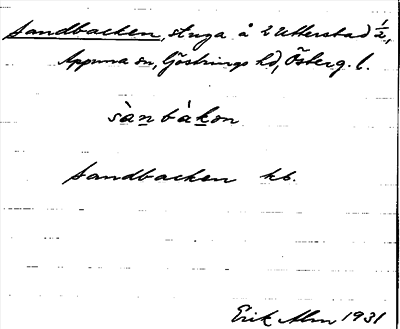 Sandbacken, stuga å Utterstad 1/2,
Appuna sn, Göstrings hd, Österg. l.
sànbàkon
Sandbacken kb.
Erik Alm 1931